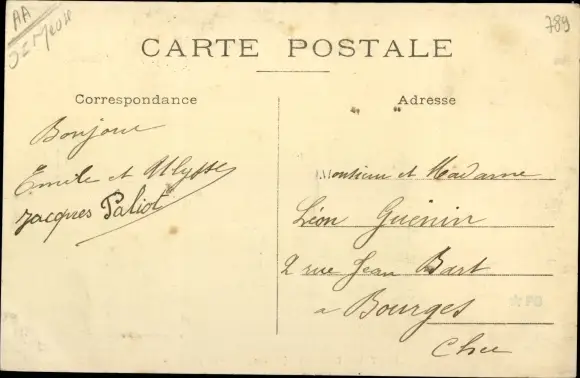 AA
789
CARTE POSTALE
Correspondance
Adresse
Bonjour
Emile et Ulysse
Jacques Paliot
Monsieur et Madame
Léon Guenin
2 rue Jean Bart
a Bourges
Cher